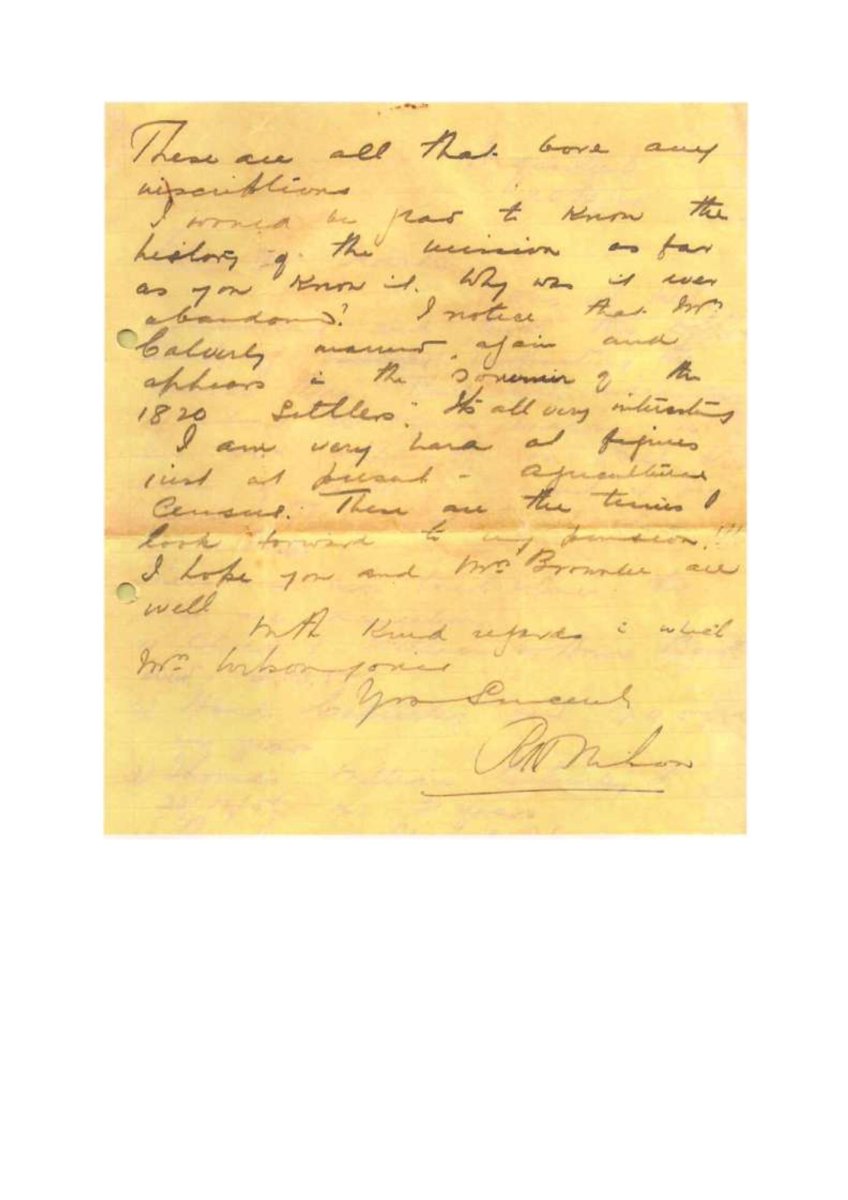 These are all that bore any
inscriptions
I would be glad to know the
history of the mission as far
as you know it. Why was it ever
abandoned? I notice that Mrs
Calverly married again and
appears in the "Souvenir of the
1820 Settlers". It's all very interesting
I am very hard at figures
just at present - Agricultural
Census. These are the times I
look forward to my pension.!!!
I hope you and Mrs Brownlee are
well
With kind regards in which
Mrs joins
Yrs Sincerely